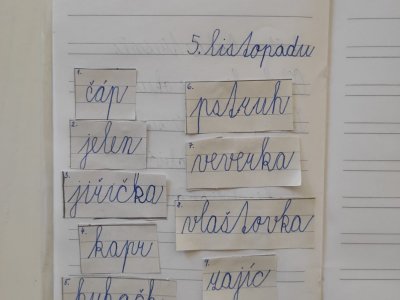 5. listopadu
1. čáp
2. jelen
3. jiřička
4. kapr
5.
6. pstruh
7. veverka
8. vlaštovka
9. zajíc